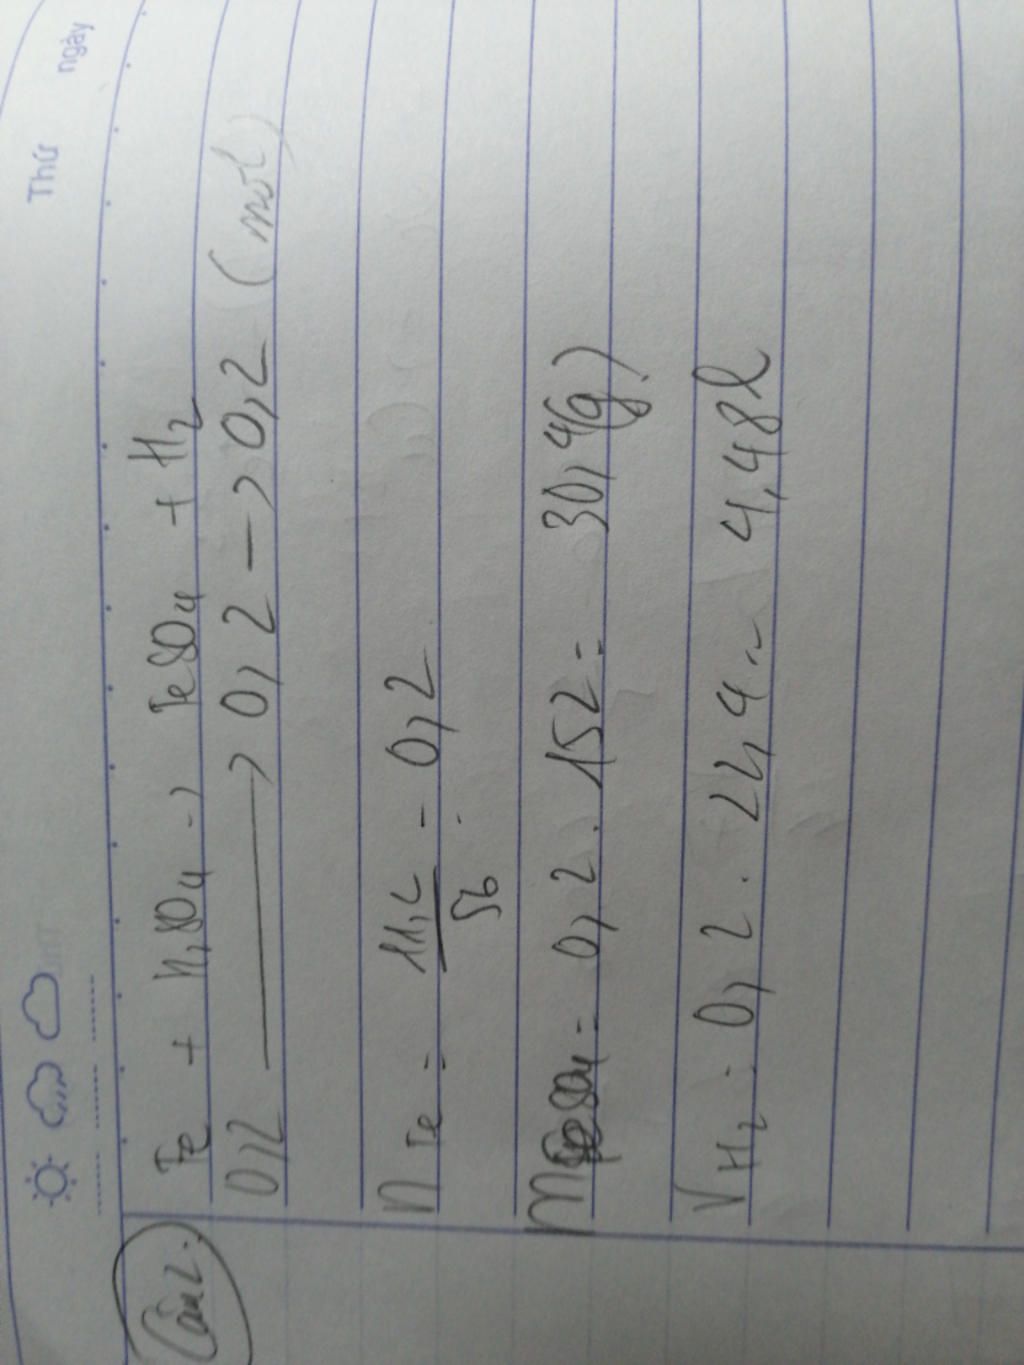 Thứ
ngày
Câu 2:
Fe + H2SO4 -> FeSO4 + H2
0,2 -> 0,2 -> 0,2 (mol)
nFe = 11,2 / 56 = 0,2
mFeSO4 = 0,2 . 152 = 30,4(g)
VH2 = 0,2 . 22,4 = 4,48l